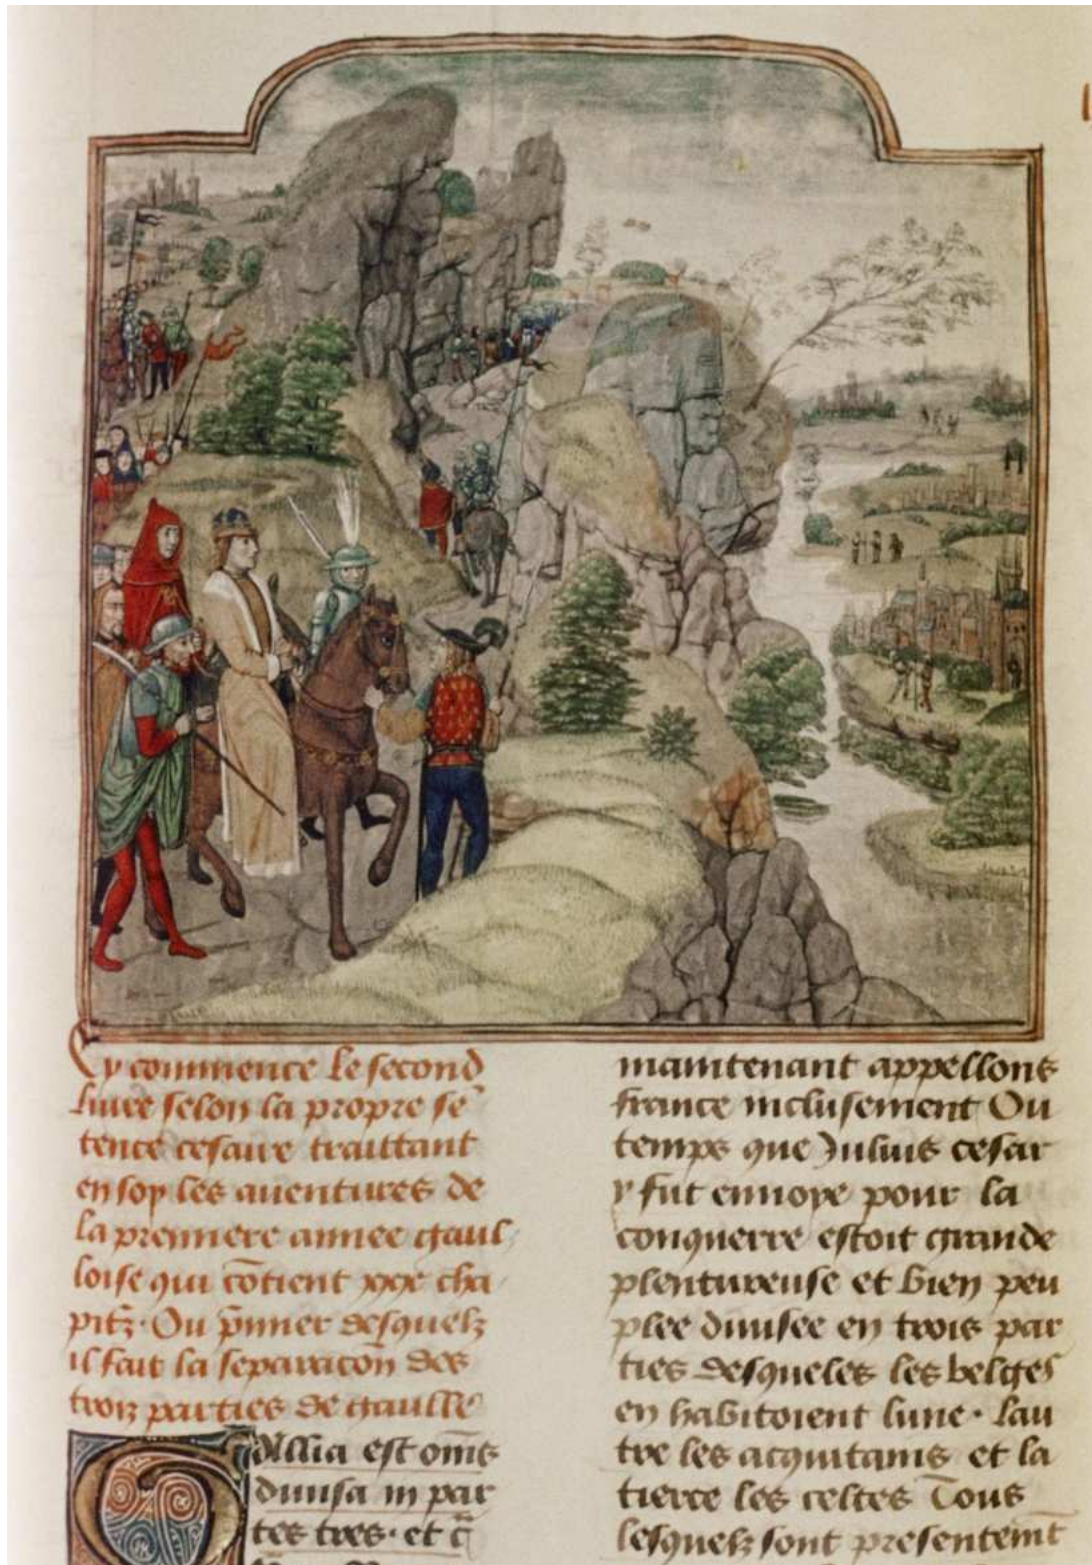 Cy commence le second
liure selon la propre sē
tence cesaire traittant
en soy les auentures de
la premiere annee gaul
loise qui cōtient xxx cha
pitz. Ou p̄mier desquelz
il fait la separacōn des
trois parties de gaulle
Gallia est om̄s
diuisa in par
tes tres. et c̄
maintenant appellons
france inclusement Ou
temps que Julius cesar
y fut enuoye pour la
conquerre estoit grande
plentureuse et bien peu
plee diuisee en trois par
ties desqueles les belges
en habitoient lune. lau
tre les acquitains et la
tierce les celtes Tous
lesquelz sont presentemt